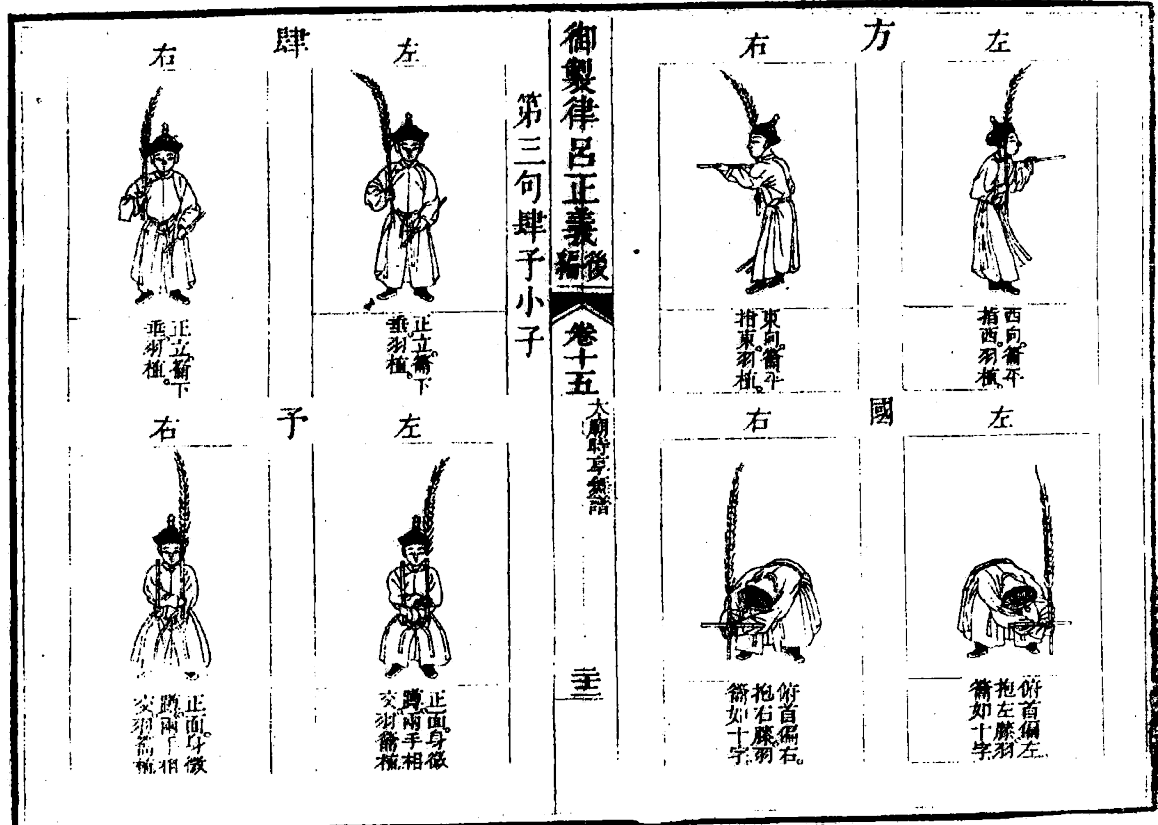 方
左
西向。籥平
指西。羽植。
右
東向。籥平
指東。羽植。
國
左
俯首偏左。
抱左膝。羽
籥如十字
右
俯首偏右。
抱右膝。羽
籥如十字
御製律呂正義後編
卷十五
太廟時享舞譜
第三句肆予小子
肆
左
正立。籥下
垂。羽植。
右
正立。籥下
垂。羽植。
予
左
正面。身微
蹲。兩手相
交。羽籥植
右
正面。身微
蹲。兩手相
交。羽籥植